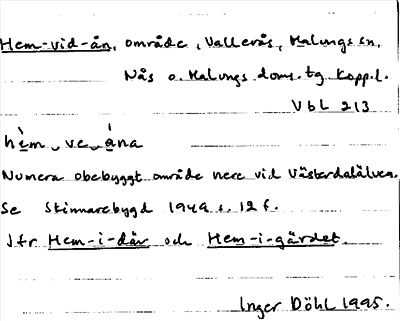 Hem-vid-ån, område, Vallerås, Malungs sn,
Nås o. Malungs doms. tg Kopp.l.
VbL 213
hèm ve ána
Numera obebyggt område nere vid Västerdalälven.
Se Skinnarebygd 1949 s. 12 f.
Jfr Hem-i-där och Hem-i-gärdet.
Inger Döhl 1995.